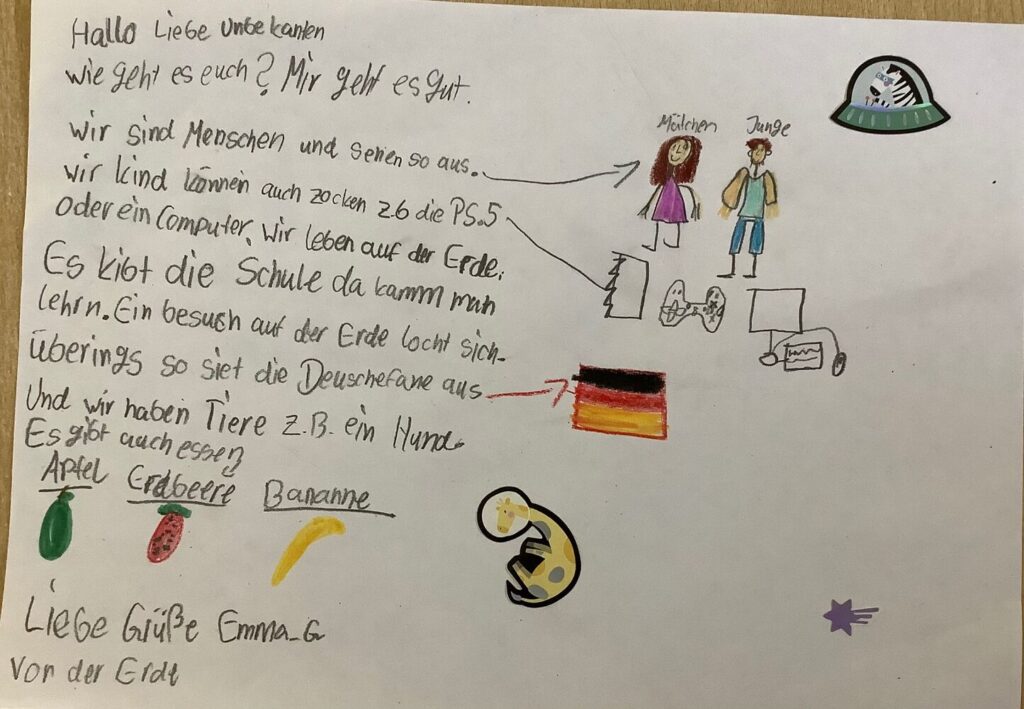 Hallo Liebe Unbekanten
wie geht es euch? Mir geht es gut.
wir sind Menschen und sehen so aus.
Mätchen Junge
wir kind können auch zocken z.b die PS.5
oder ein Computer. Wir leben auf der Erde.
Es kibt die Schule da kamm man
lehrn. Ein besuch auf der Erde locht sich.
überings so siet die Deuschefane aus
Und wir haben Tiere z.B. ein Hund.
Es gibt auch essen
Apfel Erdbeere Bananne
Liebe Grüße Emma_G
Von der Erde